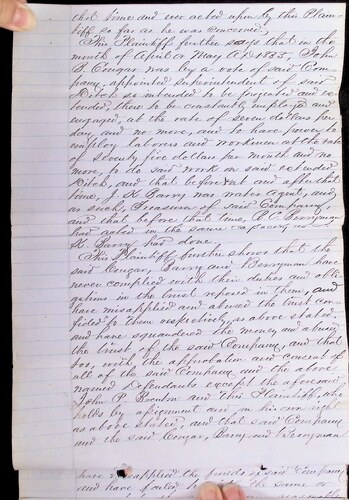 that time and ever acted upon by this Plain-
tiff so far as he was concerned,
This Plaintiff further says that in the
month of April or May A.D. 1855, John
B. Conger, was by a vote of said Com-
pany, appointed Superintendent of said
Ditch so intended to be projected and ex-
tended, there to be constantly employed and
engaged, at the rate of seven dollars per
day, and no more, and to have power to
employ laborers and workmen at the rate
of seventy five dollars per month and no
more, to do said work on said extended
Ditch, and that before that and after that
time, J. H. Barry was made Agent, and,
as such, Treasurer of said Company,
and that before that time, P. C. Berryman
had acted in the same capacity as
H. Barry had done.
This Plaintiff further shows that the
said Conger, Barry and Berryman have
never complied with their duties and obli-
gations in the trust reposed in them, and
have misapplied and abused the trust con-
fided to them respectively, as above stated,
and have squandered the money and abused
the trust of the said Company, and that
too, with the approbation and consent of
all of the said Company and the above
named Defendants except the aforesaid
John P. and this Plaintiff, who
holds by assignment and in his own right
as above stated, and that said Company
and the said Conger, Barry and Berryman
have misapplied the funds of said Company
and have failed to the same or